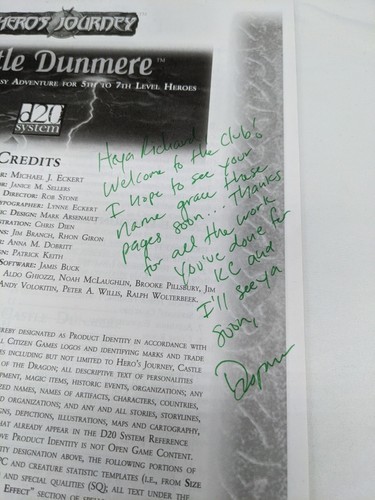 HERO'S JOURNEY™
tle Dunmere™
sy Adventure for 5th to 7th Level Heroes
d20
system
Credits
r: Michael J. Eckert
r: Janice M. Sellers
Director: Rob Stone
ypographer: Lynne Eckert
ic Design: Mark Arsenault
stration: Chris Dien
ns: Jim Branch, Rhon Giron
n: Anna M. Dobritt
gn: Patrick Keith
Software: Jamis Buck
Aldo Ghiozzi, Noah McLaughlin, Brooke Pillsbury, Jim
Andy Volokitin, Peter A. Wills, Ralph Wolterbeek,
Heya Richard!
Welcome to the Club!
I hope to see your
name grace these
pages soon... Thanks
for all the work
you've done for
KC and
I'll see ya
soon,
ereby designated as Product Identity in accordance with
ll Citizen Games logos and identifying marks and trade
es including but not limited to Hero's Journey, Castle
of the Dragon; all descriptive text of personalities
pment, magic items, historic events, organizations; any
zed names, names of artifacts, characters, countries,
d organizations; and any and all stories, storylines,
gns, depictions, illustrations, maps and cartography,
hat already appear in the D20 System Reference
ve Product Identity is not Open Game Content.
ity designation above, the following portions of
PC and creature statistic templates (i.e., from Size
and special qualities (SQ); all text under the
Effect" section of